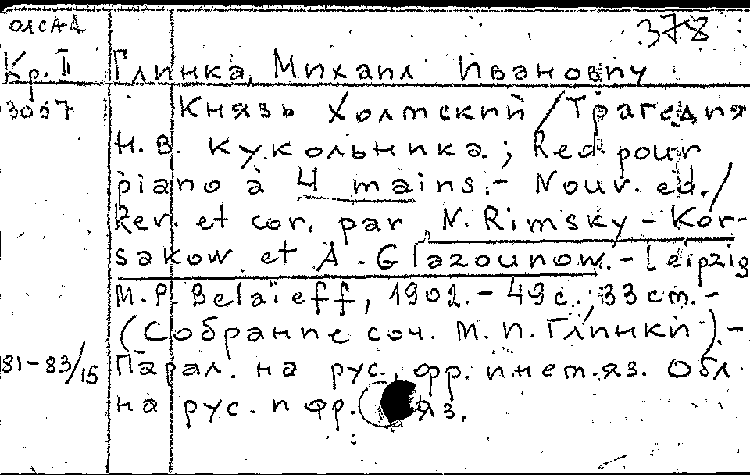 378
Кр. II Глинка, Михаил Иванович
3097 Князь Холмский / Трагедия
Н. В. Кукольника.; Red pour
piano à 4 mains.- Nouv. ed./
Rev. et cor. par N. Rimsky-Kor-
sakow et A. Glazounow.- Leipzig
M. P. Belaïeff, 1902.- 49 с.; 33 cm.-
(Собрание соч. М. И. Глинки).-
81-83/15 Парал. на рус., фр. и нем. яз. Обл.
на рус. и фр. яз.